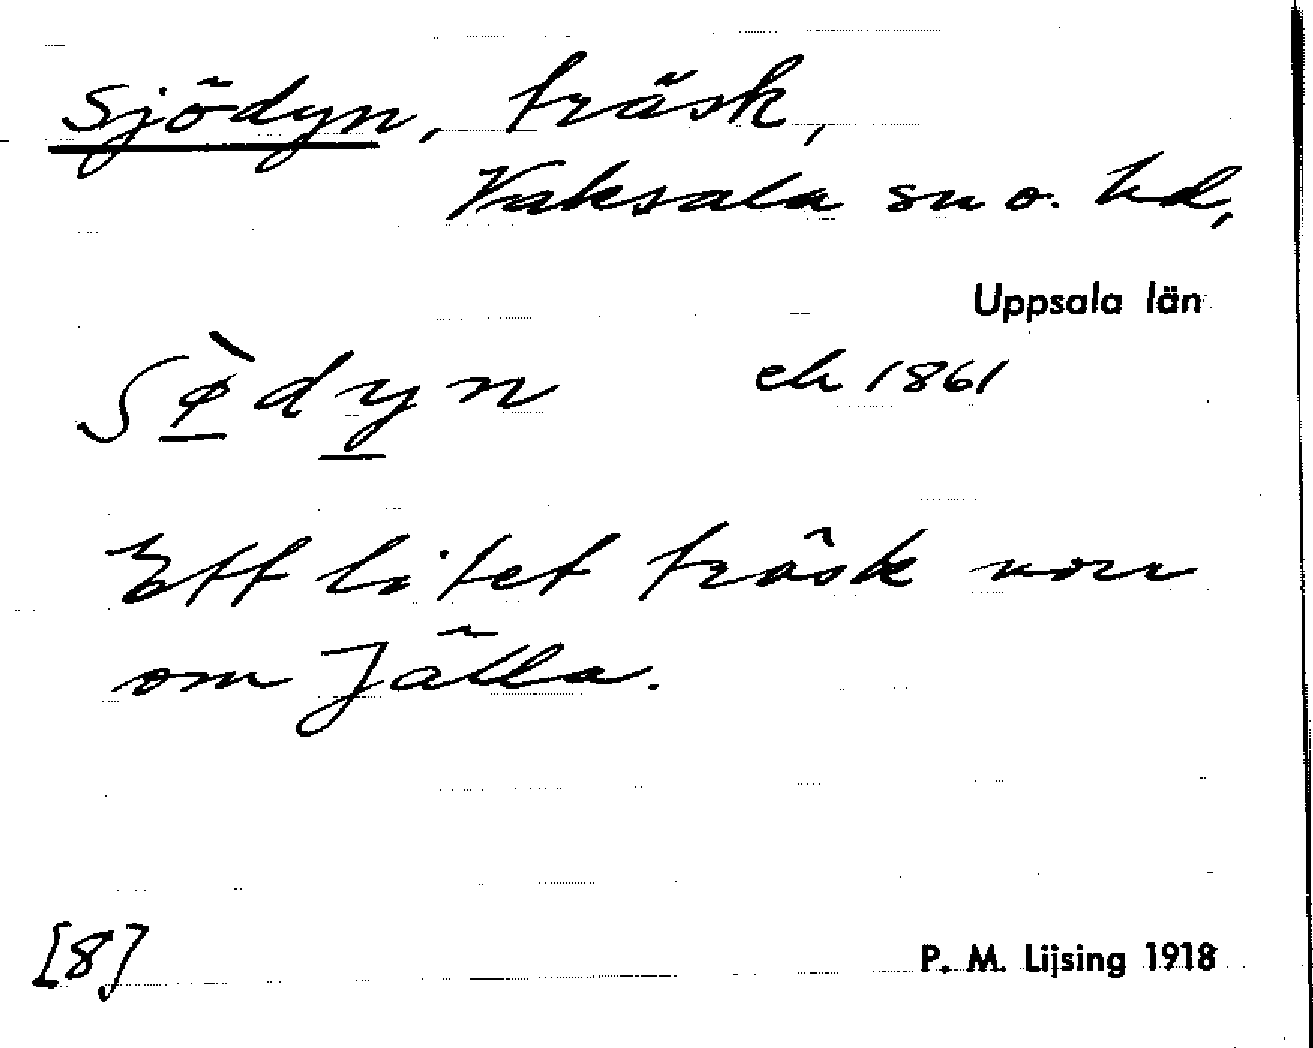 Sjödyn, träsk,
Vaksala sn o. hd,
Uppsala län
ʃø̀dyn ek 1861
Ett litet träsk norr
om Jälla.
[8] P. M. Lijsing 1918